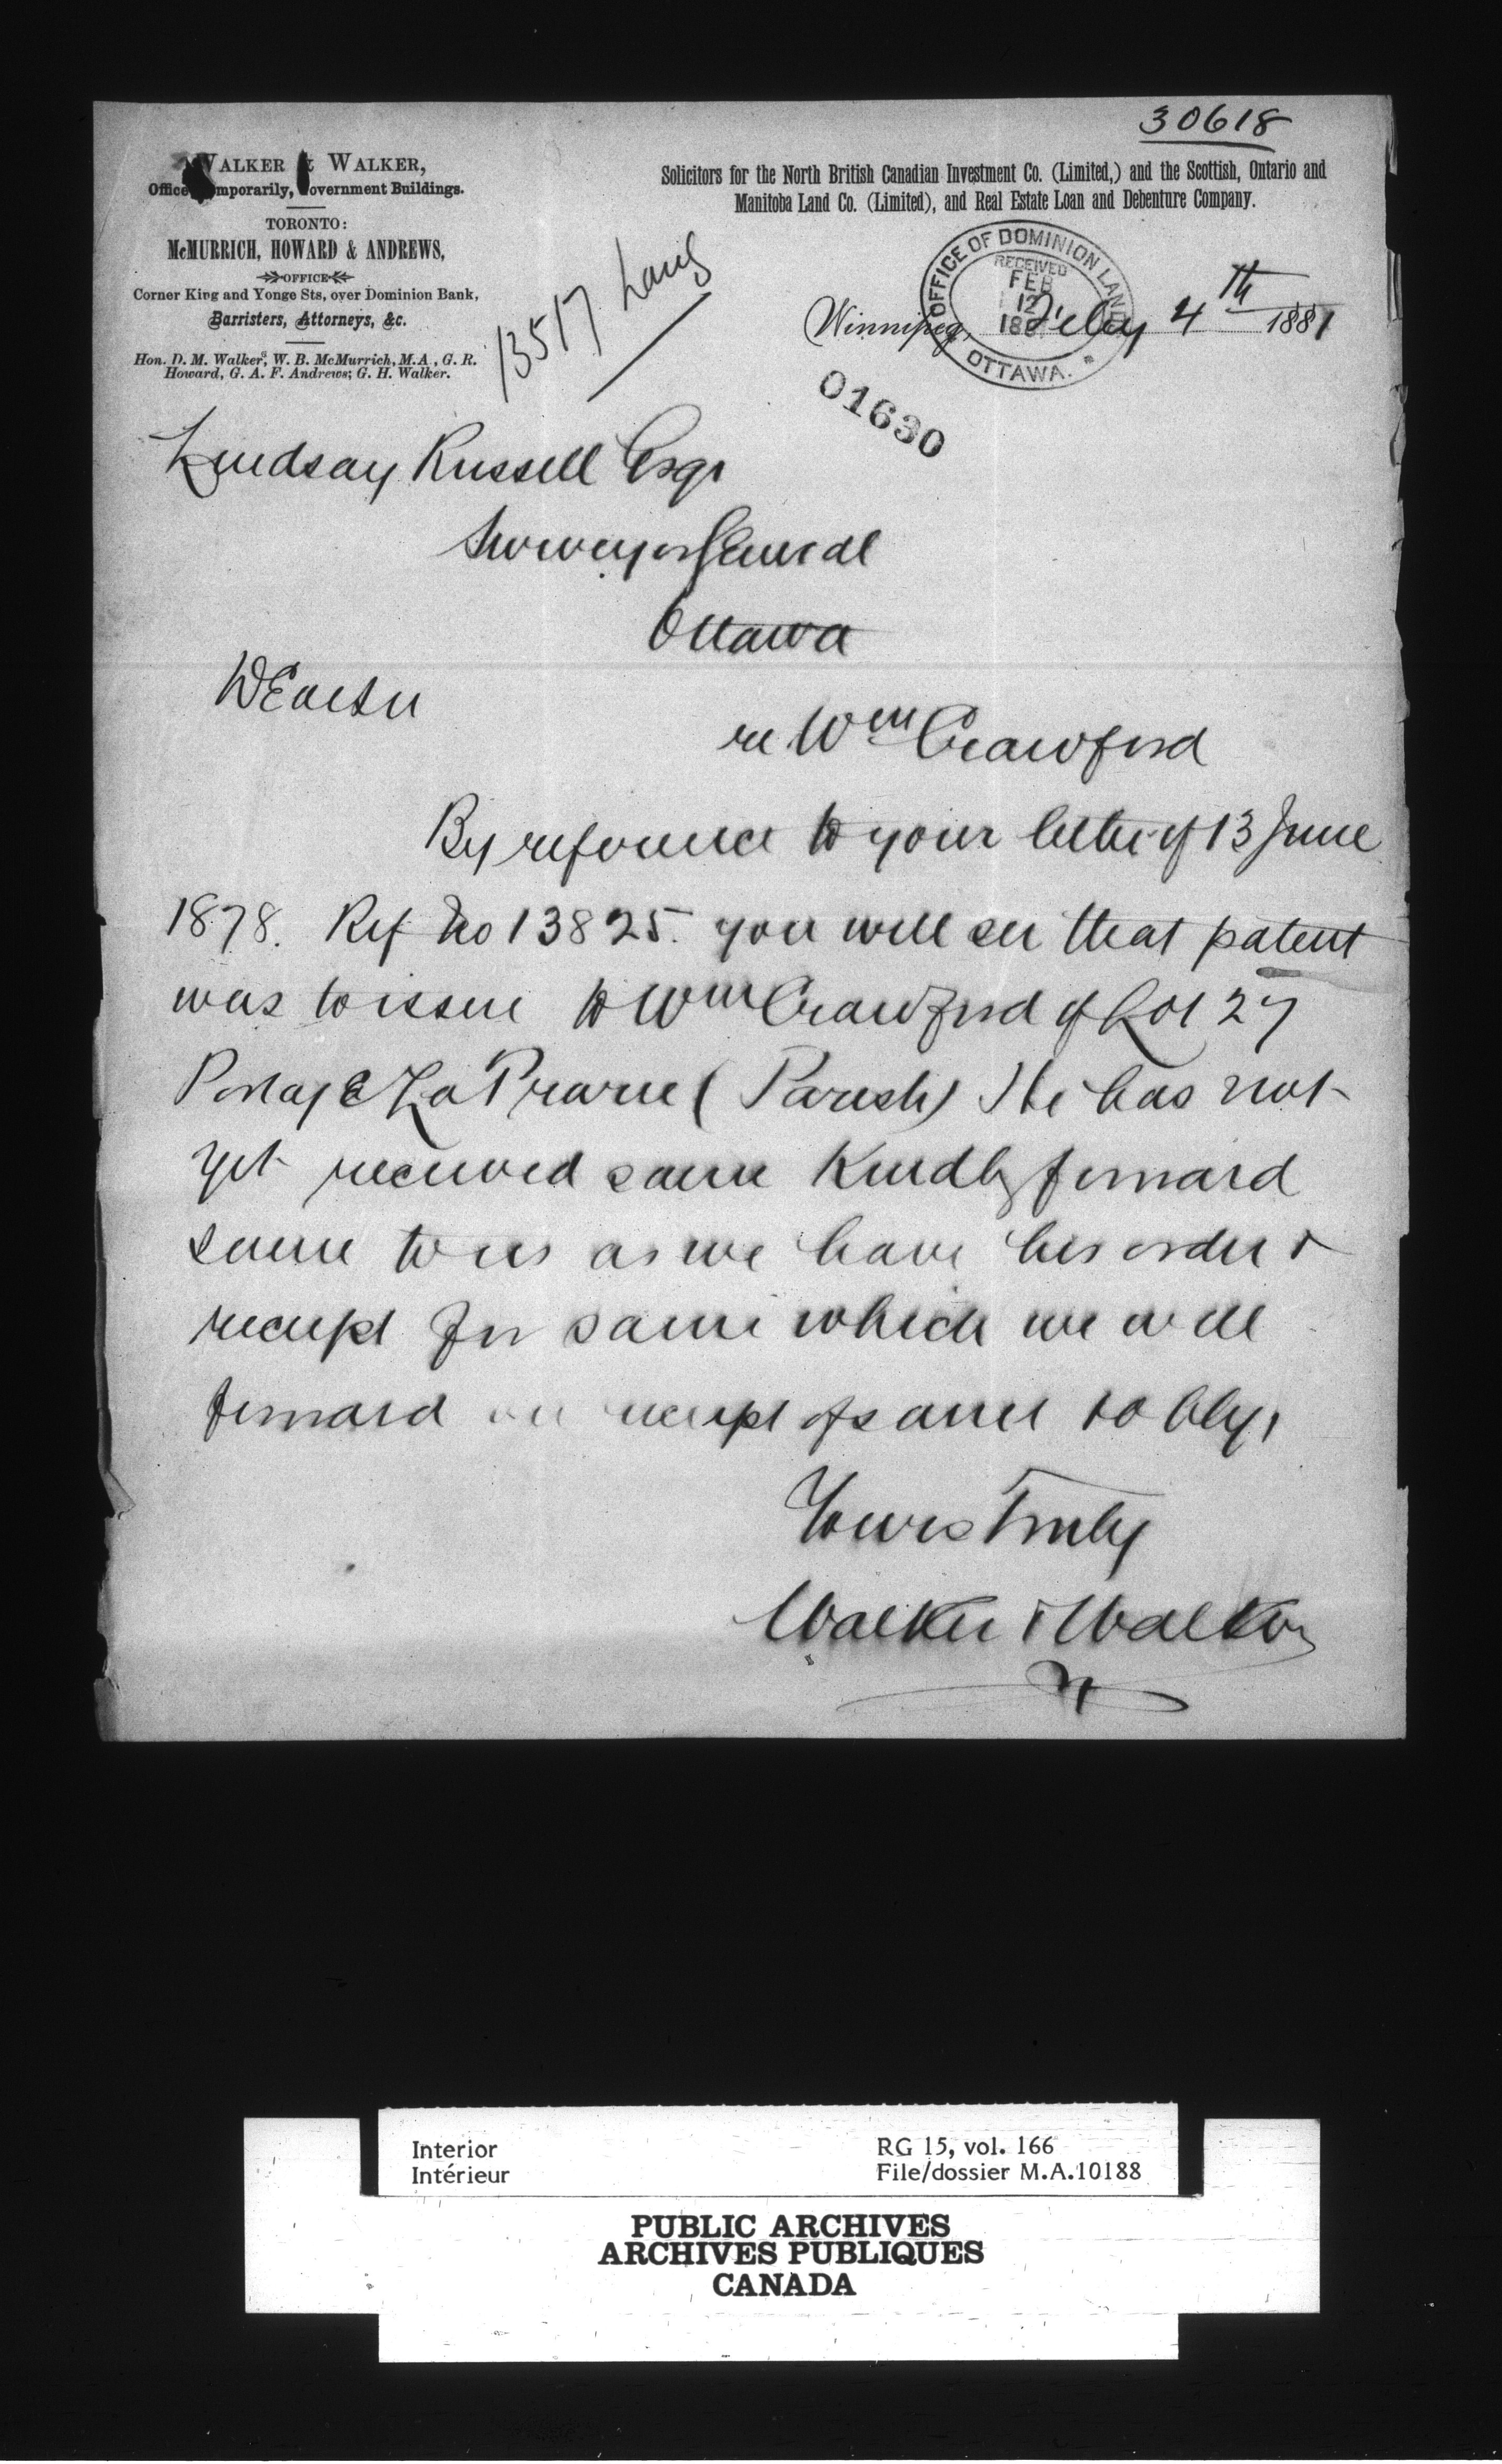 30618
WALKER & WALKER,
Office Temporarily, Government Buildings.
TORONTO:
McMURRICH, HOWARD & ANDREWS,
OFFICE
Corner King and Yonge Sts, over Dominion Bank,
Barristers, Attorneys, &c.
Hon. D. M. Walker, W. B. McMurrich, M.A., G. R.
Howard, G. A. F. Andrews; G. H. Walker.
Solicitors for the North British Canadian Investment Co. (Limited,) and the Scottish, Ontario and
Manitoba Land Co. (Limited), and Real Estate Loan and Debenture Company.
13517
OFFICE OF DOMINION LANDS
RECEIVED
FEB
12
188
OTTAWA.
Winnipeg, Feby 4th 1881
01630
Lindsay Russell Esqr
Surveyor General
Ottawa
Dear Sir
re Wm Crawford
By reference to your letter of 13 June
1878. Ref No 13825. you will see that patent
was to issue to Wm Crawford of Lot 27
Portage La Prairie (Parish) He has not
yet received same Kindly forward
same to us as we have his order &
receipt for same which we will
forward on receipt of same & oblige
Yours Truly
Walker & Walker
Interior
Intérieur
RG 15, vol. 166
File/dossier M.A.10188
PUBLIC ARCHIVES
ARCHIVES PUBLIQUES
CANADA